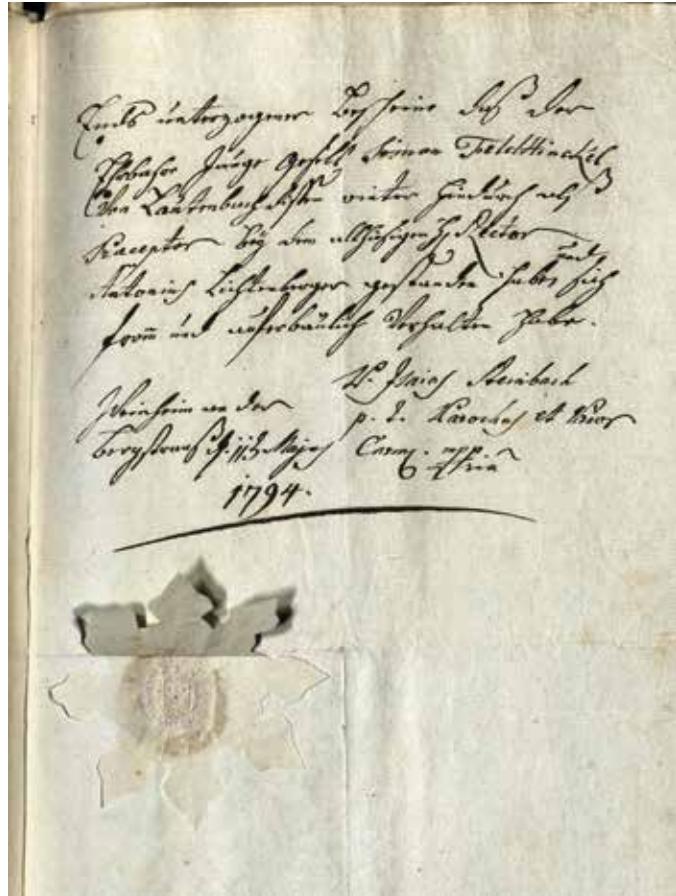 Ends unterzogener Bescheine daß der
Ehrbahre Junge Gesell Simon Feldthinckel
Von Lautenbach diesen winter hiedurch als
Praeceptor bey dem allhiesigen H. Rector
Antonius Lichtenberger gestanden habe, und sich
from und auferbaulich Verhalten habe.
Weinheim an der
Bergstraaß d. 11t. Majus
1794.
P. Isaias Steinbach
p. t. Parochus et Prior
Carm. mpp.